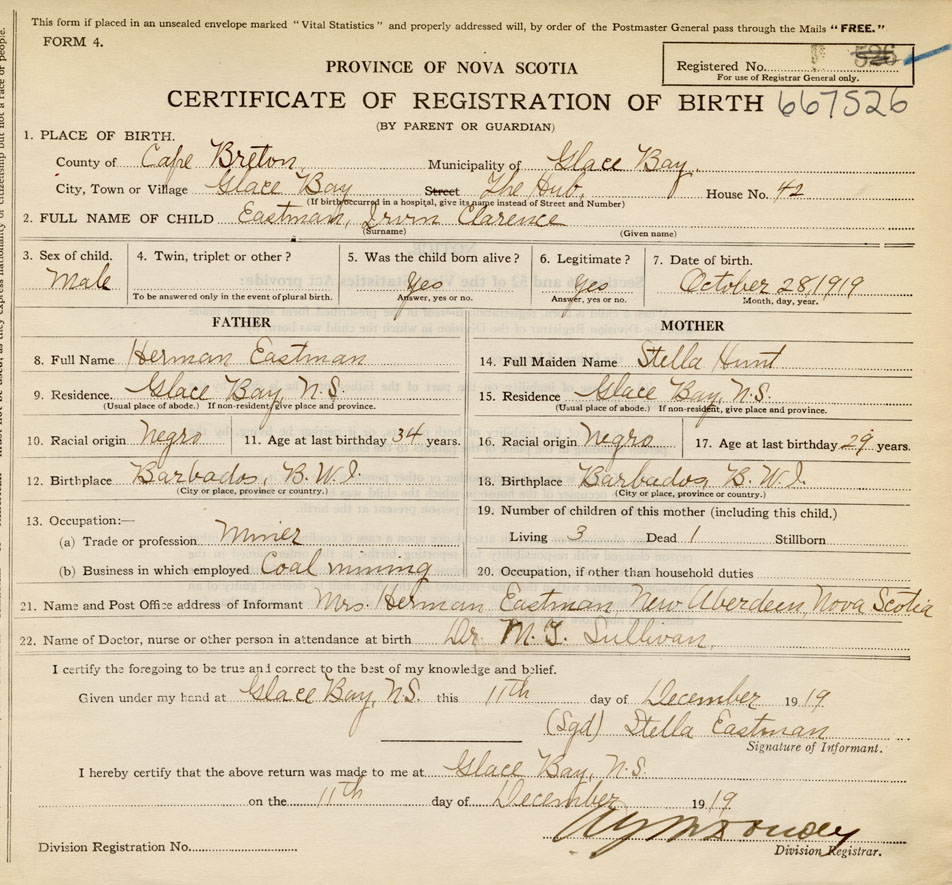 This form if placed in an unsealed envelope marked "Vital Statistics" and properly addressed will, by order of the Postmaster General pass through the Mails "FREE."
FORM 4.
Registered No. 526
For use of Registrar General only.
PROVINCE OF NOVA SCOTIA
CERTIFICATE OF REGISTRATION OF BIRTH 667526
(BY PARENT OR GUARDIAN)
1. PLACE OF BIRTH.
County of Cape Breton Municipality of Glace Bay
City, Town or Village Glace Bay Street The Hub, House No. 42
(If birth occurred in a hospital, give its name instead of Street and Number)
2. FULL NAME OF CHILD Eastman, Irvin Clarence
(Surname) (Given name)
3. Sex of child. 4. Twin, triplet or other? 5. Was the child born alive? 6. Legitimate? 7. Date of birth.
Male Yes Yes October 28, 1919
To be answered only in the event of plural birth. Answer, yes or no. Answer, yes or no. Month, day, year.
FATHER MOTHER
8. Full Name Herman Eastman 14. Full Maiden Name Stella Hunt
9. Residence. Glace Bay, N.S. 15. Residence Glace Bay, N.S.
(Usual place of abode.) If non-resident, give place and province. (Usual place of abode.) If non-resident, give place and province.
10. Racial origin Negro 11. Age at last birthday 34 years. 16. Racial origin Negro 17. Age at last birthday 29 years.
12. Birthplace Barbados, B.W.I. 18. Birthplace Barbados, B.W.I.
(City or place, province or country.) (City or place, province or country.)
13. Occupation:— 19. Number of children of this mother (including this child.)
(a) Trade or profession Miner Living 3 Dead 1 Stillborn
(b) Business in which employed Coal mining 20. Occupation, if other than household duties
21. Name and Post Office address of Informant Mrs. Herman Eastman, New Aberdeen, Nova Scotia
22. Name of Doctor, nurse or other person in attendance at birth. Dr. M. T. Sullivan,
I certify the foregoing to be true and correct to the best of my knowledge and belief.
Given under my hand at Glace Bay, N.S. this 11th day of December 1919
(Sgd) Stella Eastman
Signature of Informant.
I hereby certify that the above return was made to me at Glace Bay, N.S.
on the 11th day of December 1919
Division Registration No.
Division Registrar.